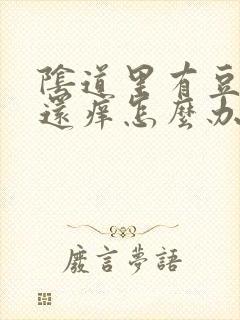 陰道里有豆
還癢怎麼办
廢言夢語